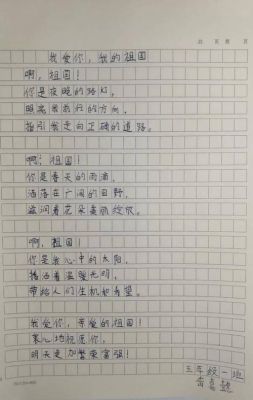 我爱你，我的祖国
啊，祖国！
你是夜晚的路灯。
照亮我前行的方向，
指引我走向正确的道路。
啊，祖国！
你是春天的雨滴，
洒落在广阔的田野，
滋润着花朵美丽绽放。
啊，祖国！
你是我心中的太阳，
播洒着温暖光明，
带给人们生机和希望。
我爱你，亲爱的祖国！
衷心地祝愿你，
明天更加繁荣富强！
五年级一班